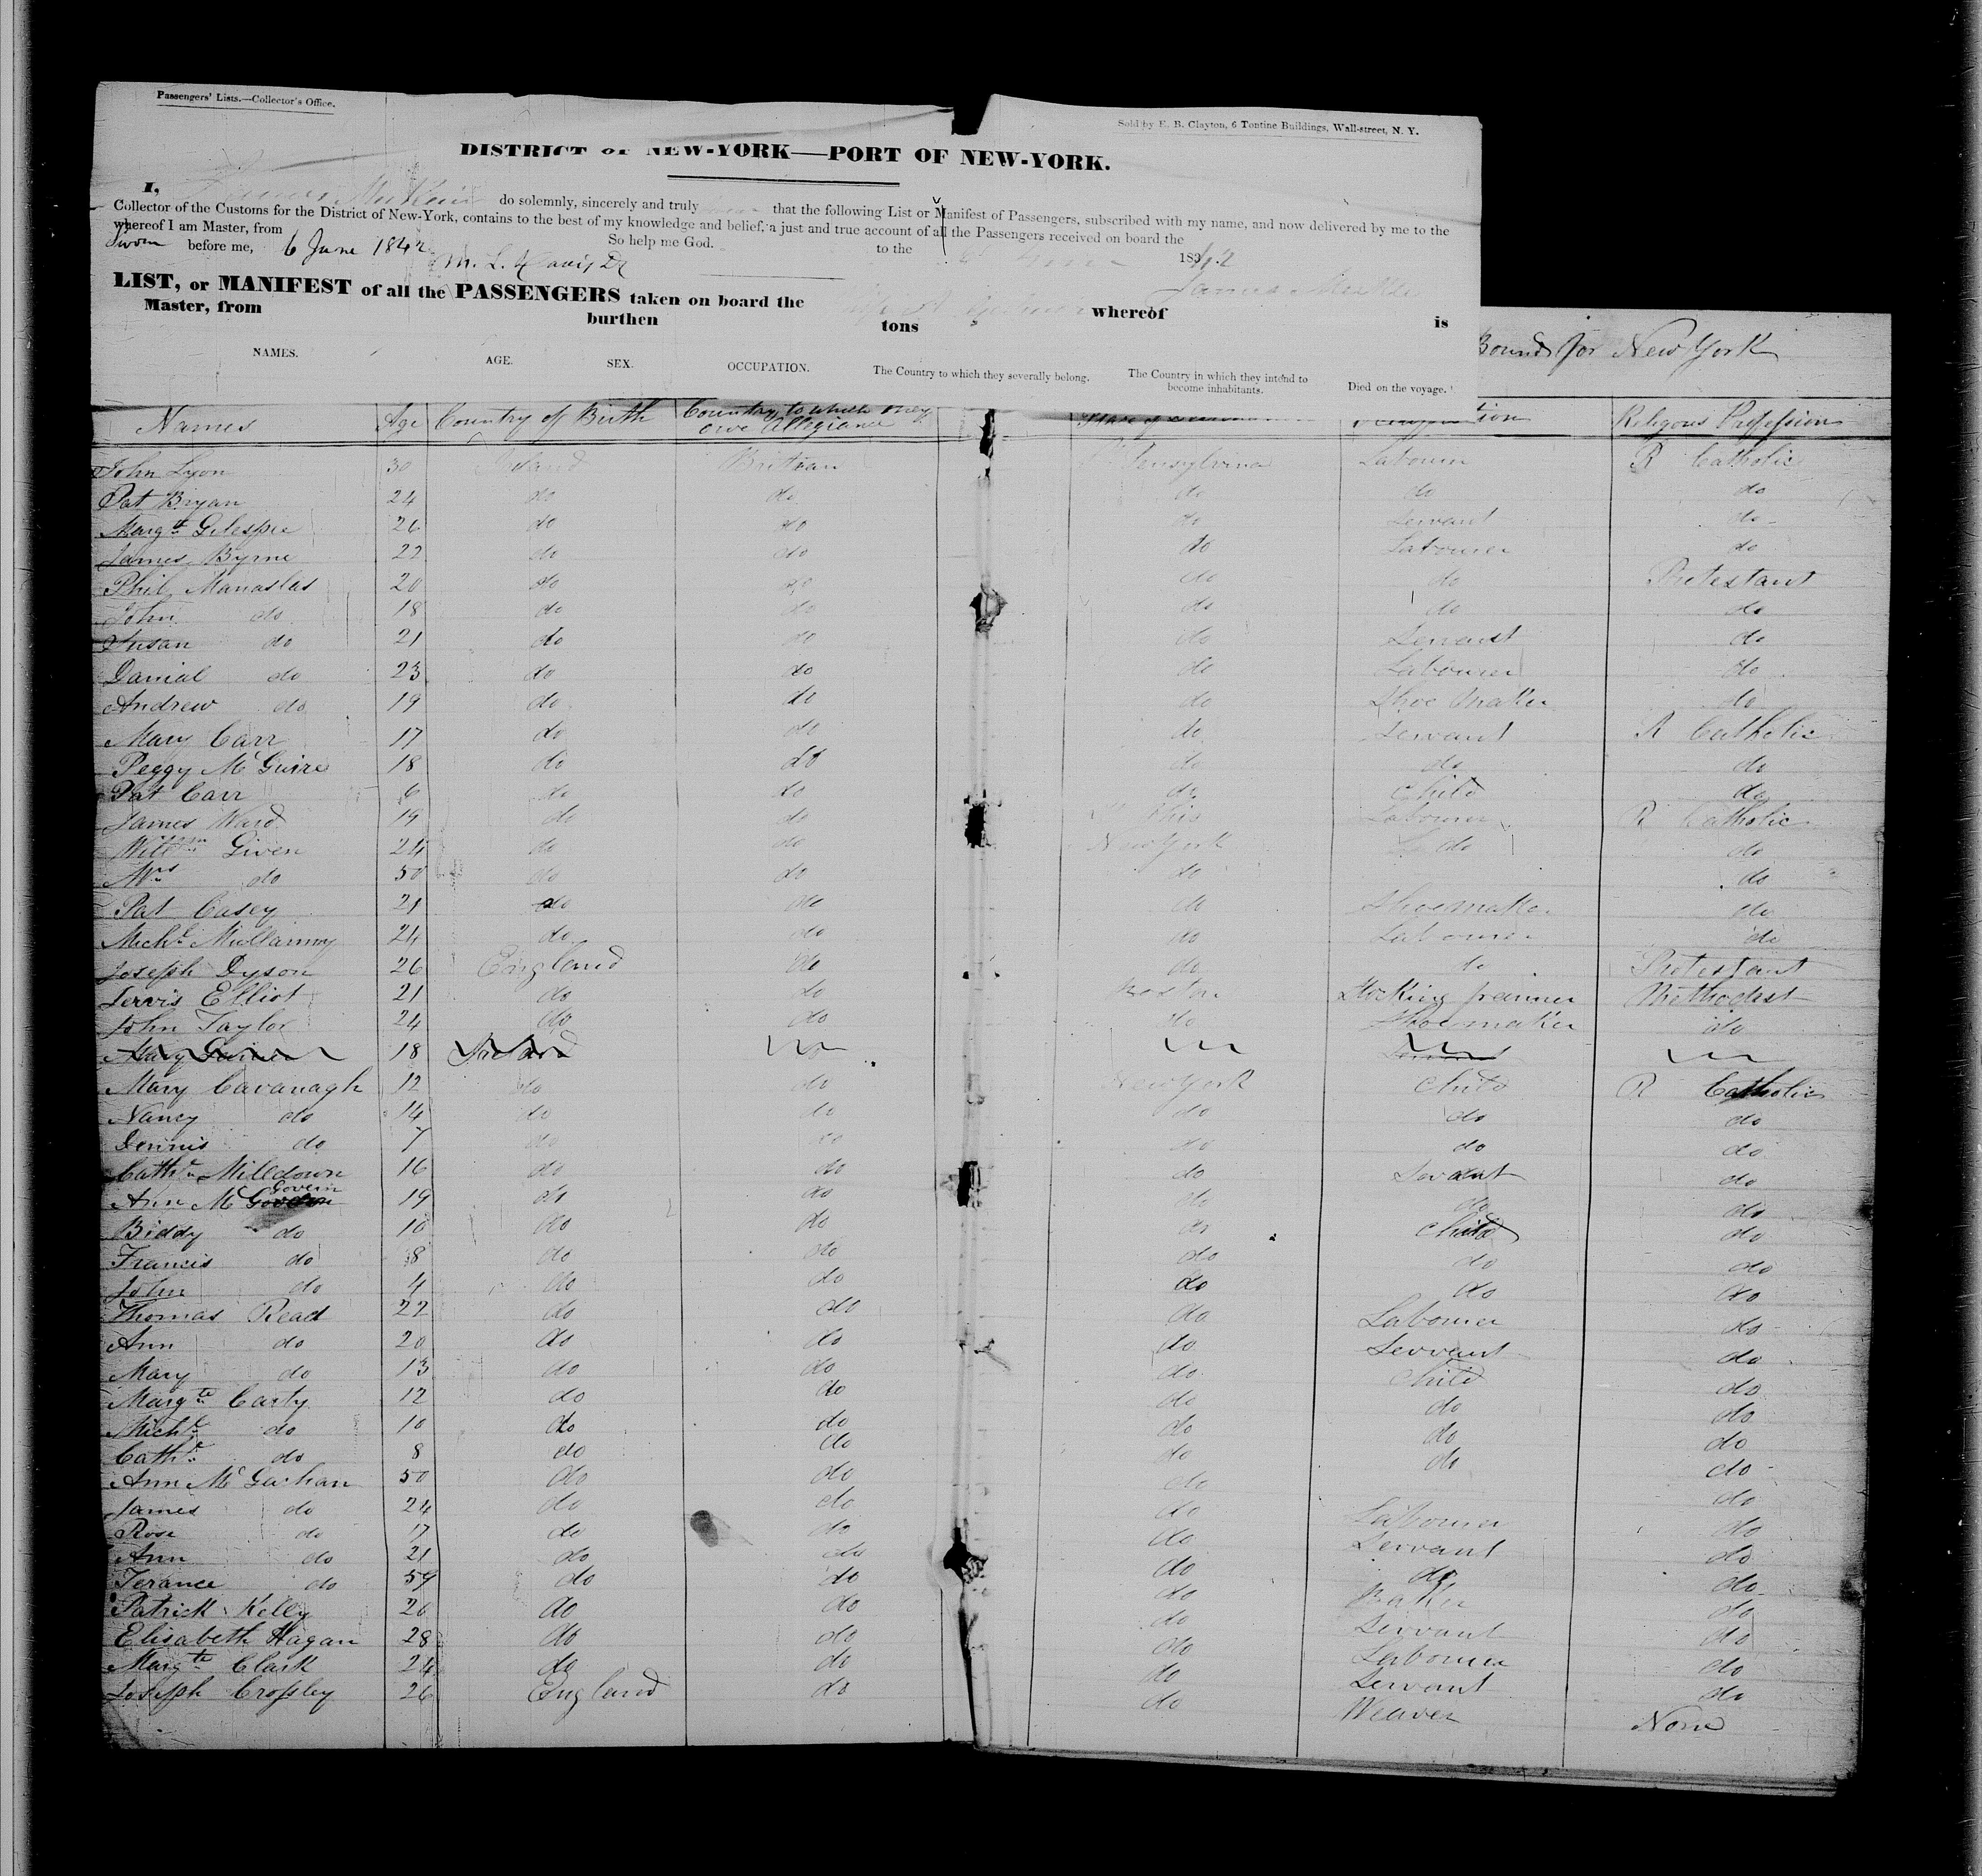 Passengers' Lists.—Collector's Office.
Sold by E. B. Clayton, 6 Tontine Buildings, Wall-street, N. Y.
DISTRICT OF NEW-YORK—PORT OF NEW-YORK.
I, do solemnly, sincerely and truly that the following List or Manifest of Passengers, subscribed with my name, and now delivered by me to the
Collector of the Customs for the District of New-York, contains to the best of my knowledge and belief, a just and true account of all the Passengers received on board the
whereof I am Master, from to the
Sworn before me, 6 June 1842 So help me God. 1842
LIST, or MANIFEST of all the PASSENGERS taken on board the whereof is
Master, from burthen tons
NAMES. AGE. SEX. OCCUPATION. The Country to which they severally belong. The Country in which they intend to become inhabitants. Died on the voyage.
Bound for New York
Names Age Country of Birth Country to which they owe Allegiance Religous Proffession
John Lyon 30 Ireland Britian Pensylvina Labourer R Catholic
Pat Bryan 24 do do do do do
Margt Gilespie 26 do do do Servant do
James Byrne 22 do do do Labourer do
Phil Manaslas 20 do do do do Protestant
John do 18 do do do do do
Susan do 21 do do do Servant do
Danial do 23 do do do Labourer do
Andrew do 19 do do do Shoe Maker do
Mary Carr 17 do do do Servant R Catholic
Peggy McGuire 18 do do do do do
Pat Carr 6 do do do Child do
James Ward 19 do do Labourer R Catholic
Willm Given 24 do do New York do do
Mrs do 50 do do do do
Pat Casey 21 do do do Shoemaker do
Michl Mullanny 24 do do do Labourer do
Joseph Dyson 26 England do do do Protestant
Jervis Elliot 21 do do Boston Stocking framer Methodast
John Taylor 24 do do do Shoemaker do
Mary 18 Ireland Servant
Mary Cavanagh 12 do do New York Child R Catholic
Nancy do 14 do do do do do
Dennis do 7 do do do do do
Cathn Milldown 16 do do do Servant do
Ann McGovern 19 do do do do do
Biddy do 10 do do do Child do
Francis do 8 do do do do do
John do 4 do do do do do
Thomas Read 22 do do do Labourer do
Ann do 20 do do do Servant do
Mary do 13 do do do Child do
Margte Carty 12 do do do do do
Michl do 10 do do do do do
Cathe do 8 do do do do do
Ann McGahan 50 do do do do
James do 24 do do do Labourer do
Rose do 17 do do do Servant do
Ann do 21 do do do do do
Terance do 59 do do do Baker do
Patrick Kelly 26 do do do Servant do
Elisabeth Hagan 28 do do do Labourer do
Margte Clark 24 do do do Servant do
Joseph Crossley 26 England do do Weaver None